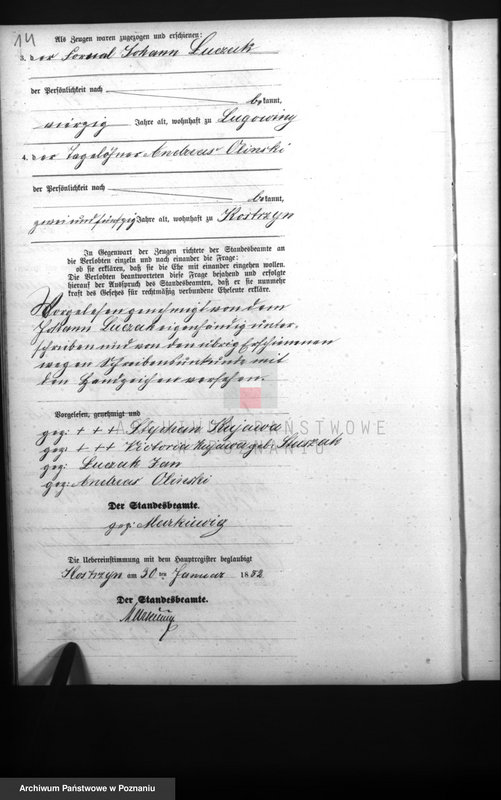 14
Als Zeugen waren zugezogen und erschienen:
3. der Fornal Johann Luczak
der Persönlichkeit nach
bekannt,
vierzig Jahre alt, wohnhaft zu Lugowiny
4. der Tagelöhner Andreas Olinski
der Persönlichkeit nach
bekannt,
zwei und fünfzig Jahre alt, wohnhaft zu Kostrzyn
In Gegenwart der Zeugen richtete der Standesbeamte an
die Verlobten einzeln und nach einander die Frage:
ob sie erklären, daß sie die Ehe mit einander eingehen wollen.
Die Verlobten beantworteten diese Frage bejahend und erfolgte
hierauf der Ausspruch des Standesbeamten, daß er sie nunmehr
kraft des Gesetzes für rechtmäßig verbundene Eheleute erkläre.
Vorgelesen genehmigt von dem
Johann Luczak eigenhändig unter-
schrieben und von den übrig Erschienenen
wegen Schreibensunkunde mit
den Handzeichen versehen.
Vorgelesen, genehmigt und
gez: + + + Stephan Kujawa
gez: + + + Victoria Kujawa geb: Stuszak
gez: Luczak Jan
gez: Andreas Olinski
Der Standesbeamte.
gez: Markiewig
Die Uebereinstimmung mit dem Hauptregister beglaubigt
Kostrzyn am 30 ten Januar 1882
Der Standesbeamte.
ARCHIWUM PAŃSTWOWE
W POZNANIU
Archiwum Państwowe w Poznaniu